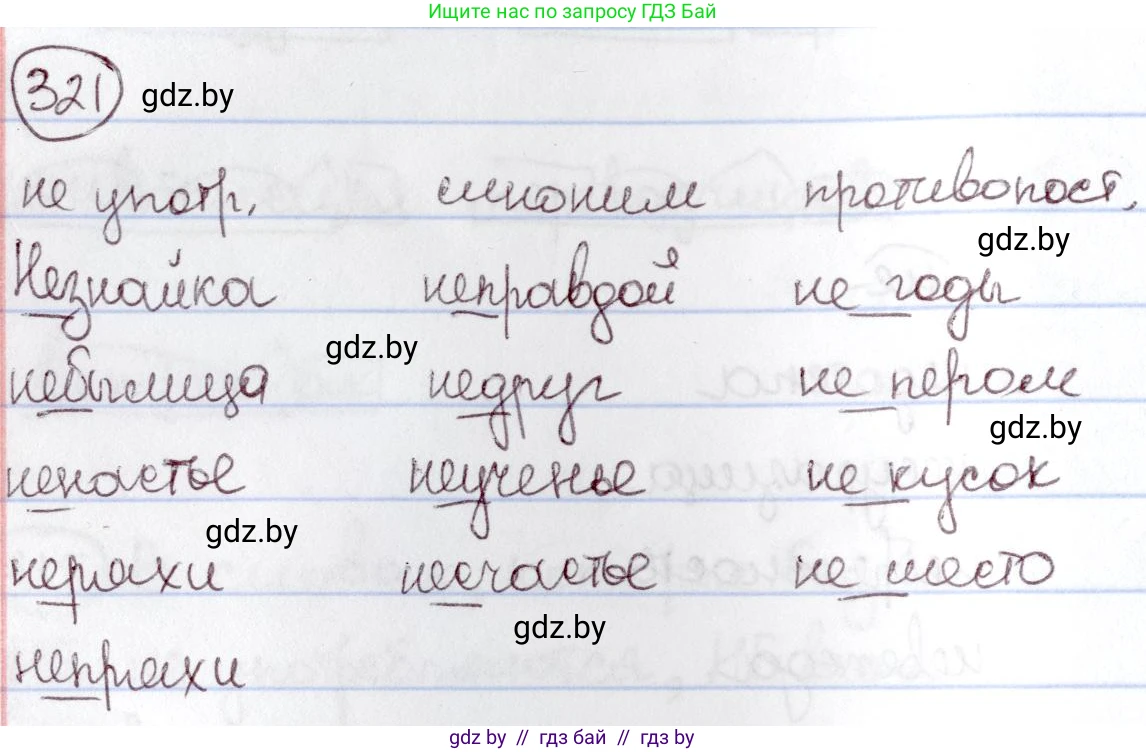 Ищите нас по запросу ГДЗ Бай
321 gdz.by
не употр. синоним противопост.
gdz.by
Незнайка неправдой не годы
gdz.by
небылица недруг не пером
gdz.by
ненастье неученье не кусок
gdz.by
неряхи несчастье не место
gdz.by
непряхи
gdz.by // гдз бай // гдз by